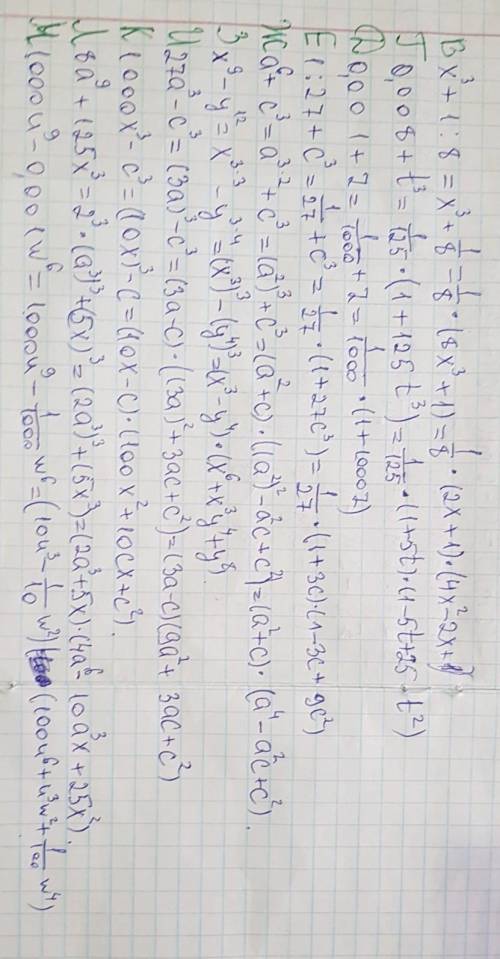 В x³ + 1:8 = x³ + 1/8 = 1/8 · (8x³ + 1) = 1/8 · (2x + 1) · (4x² - 2x + 1)
Г 0,008 + t³ = 1/125 · (1 + 125t³) = 1/125 · (1 + 5t) · (1 - 5t + 25 · t²)
Д 0,001 + 7 = 1/1000 + 7 = 1/1000 · (1 + 1000 7)
Е 1:27 + c³ = 1/27 + c³ = 1/27 · (1 + 27c³) = 1/27 · (1 + 3c) · (1 - 3c + 9c²)
Ж a⁶ + c³ = a³·² + c³ = (a²)³ + c³ = (a² + c) · ((a²)² - a²c + c²) = (a² + c) · (a⁴ - a²c + c²).
З x⁹ - y¹² = x³·³ - y³·⁴ = (x³)³ - (y⁴)³ = (x³ - y⁴) · (x⁶ + x³y⁴ + y⁸)
И 27a³ - c³ = (3a)³ - c³ = (3a - c) · ((3a)² + 3ac + c²) = (3a - c)(9a² + 3ac + c²)
К 1000x³ - c³ = (10x)³ - c = (10x - c) · (100x² + 10cx + c²).
Л 8a⁹ + 125x³ = 2³ · (a³)³ + (5x)³ = (2a³)³ + (5x³) = (2a³ + 5x) · (4a⁶ - 10a³x + 25x²).
М 1000u⁹ - 0,001w⁶ = 1000u⁹ - 1/1000 w⁶ = (10u³ - 1/10 w²) (100u⁶ + u³w² + 1/100 w⁴)